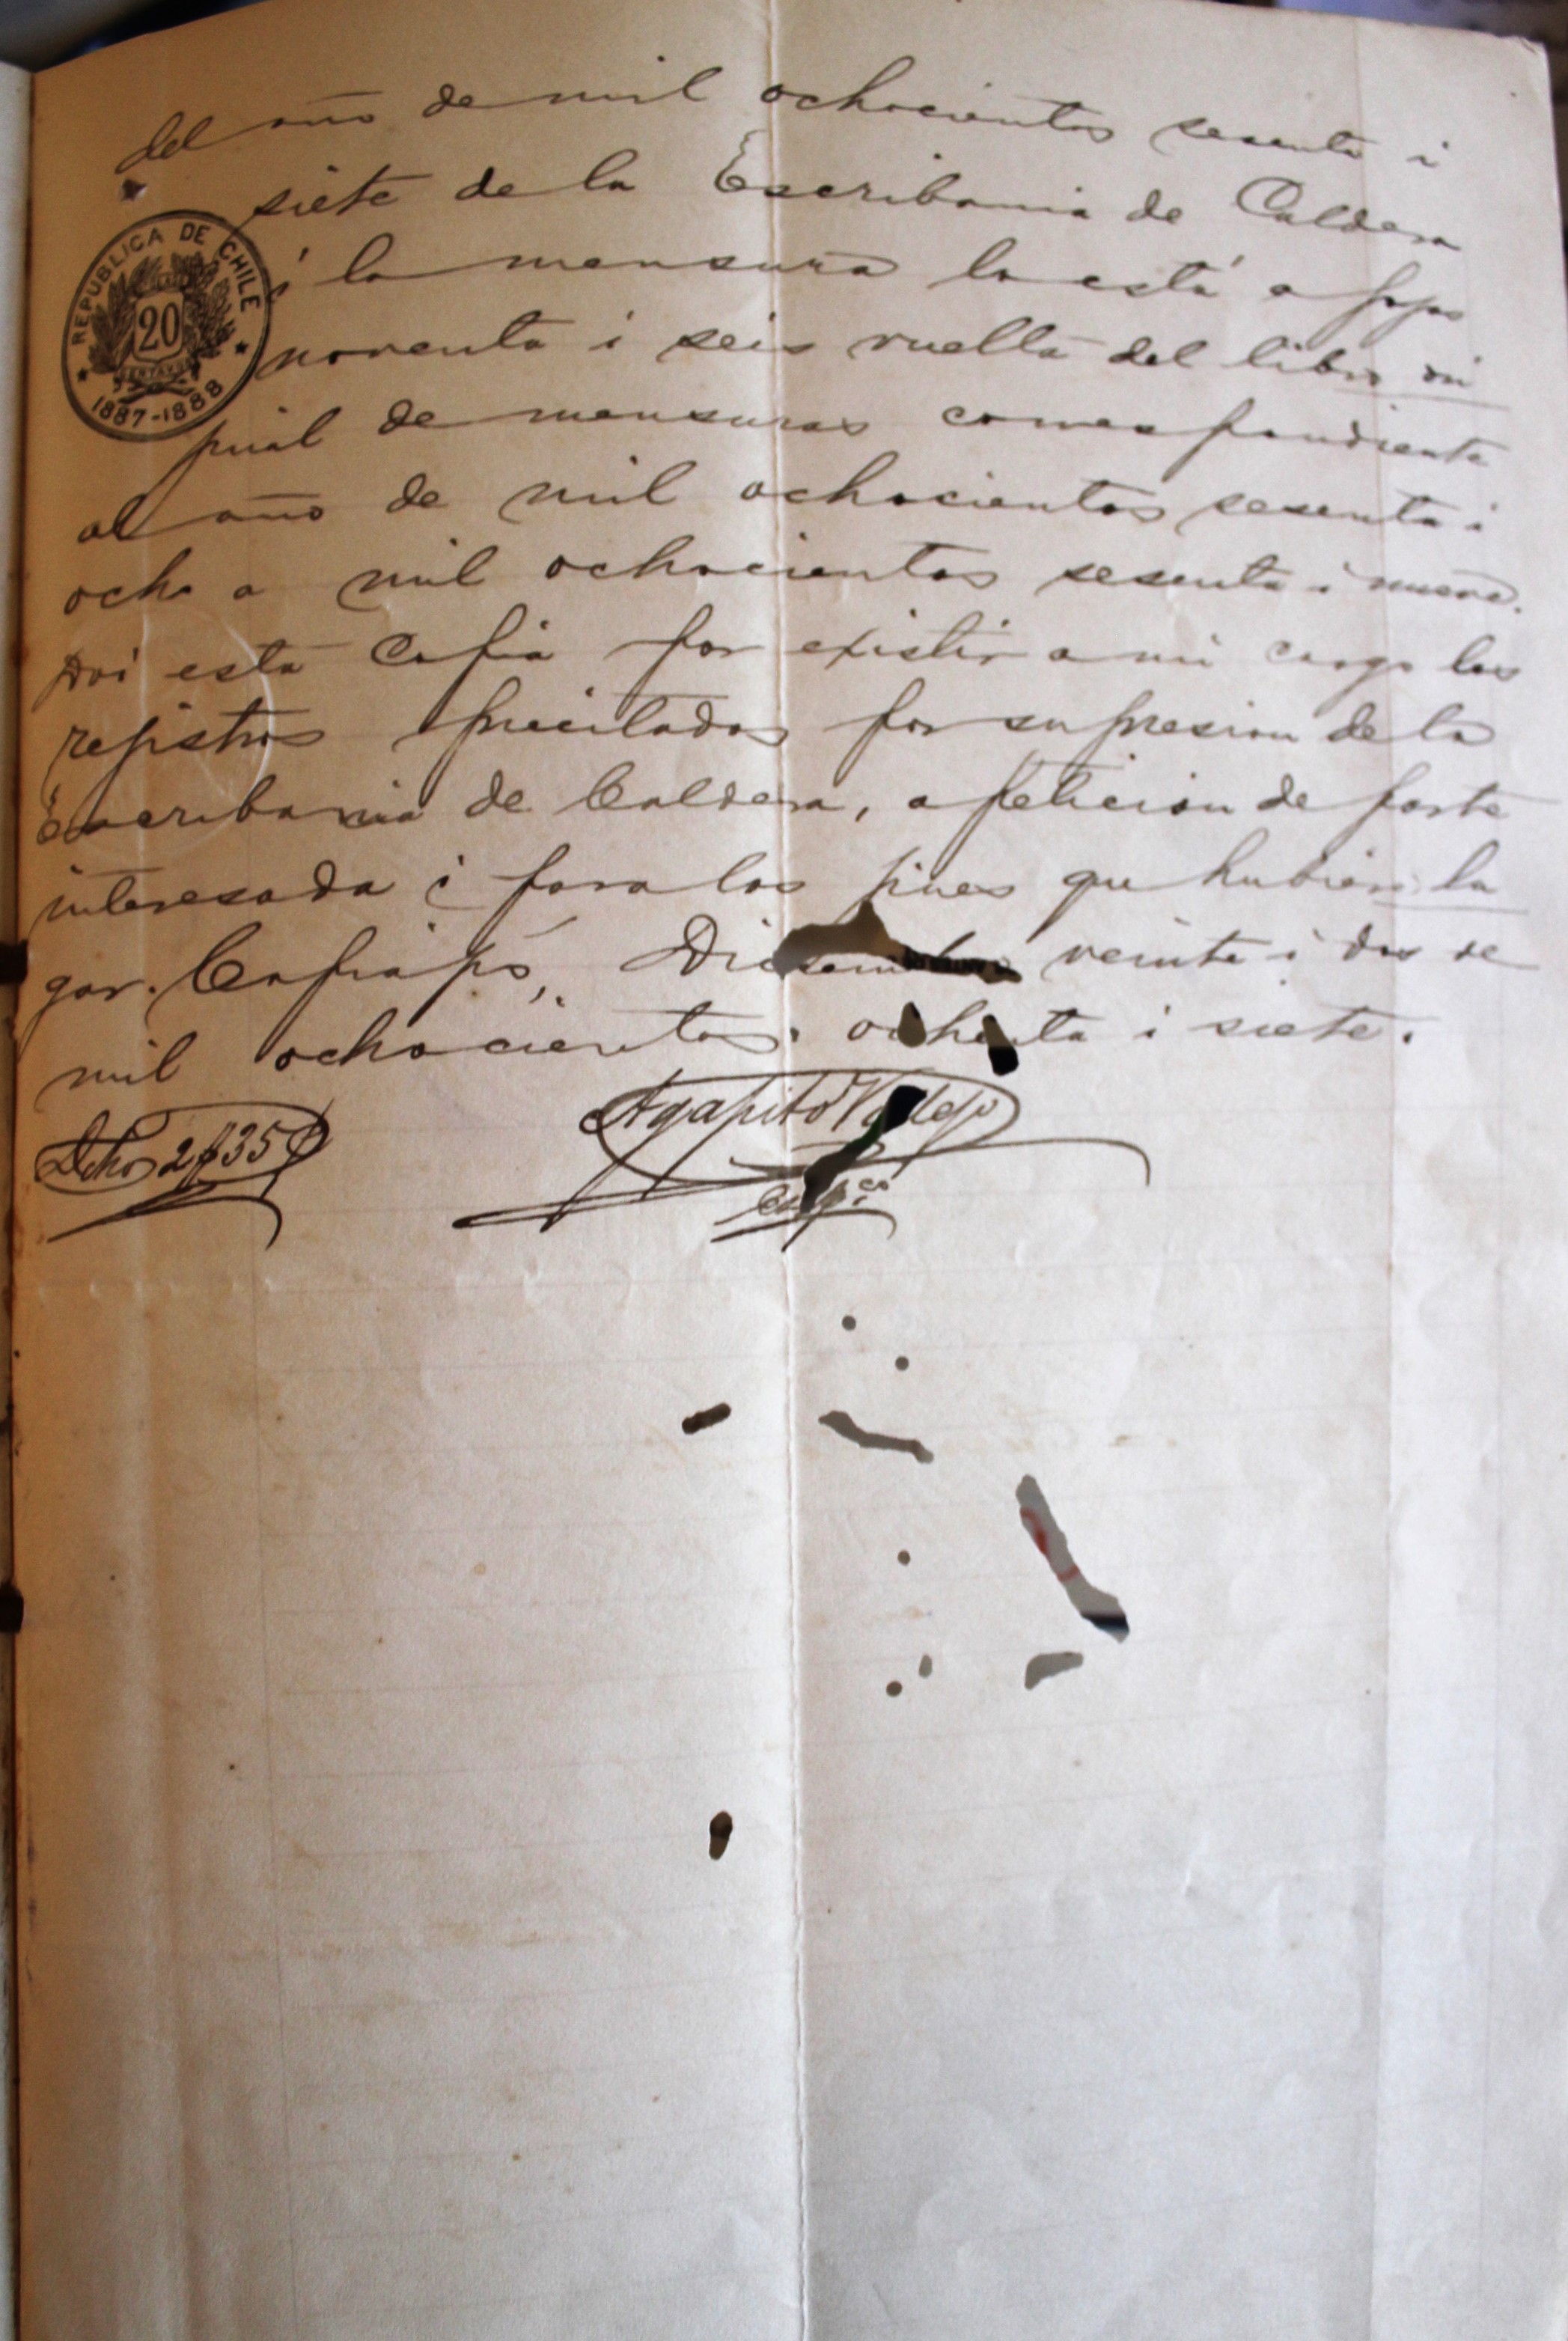 del año de mil ochocientos sesenta i
siete de la Escribania de Caldera
REPUBLICA DE CHILE
20
CENTAVOS
1887-1888
i la mensura lo está a fojas
noventa i seis vuelta del libro ori
jinal de mensuras correspondiente
al año de mil ochocientos sesenta i
ocho a mil ochocientos sesenta i nueve.
Doi esta Copia por existir a mi cargo los
rejistros precitados por supresion de la
Escribania de Caldera, a peticion de parte
interesada i para los fines que hubiere lu
gar. Copiapó, Diciembre veinte i dos de
mil ochocientos ochenta i siete.
Agapito Vallejo
Dchos 2 35